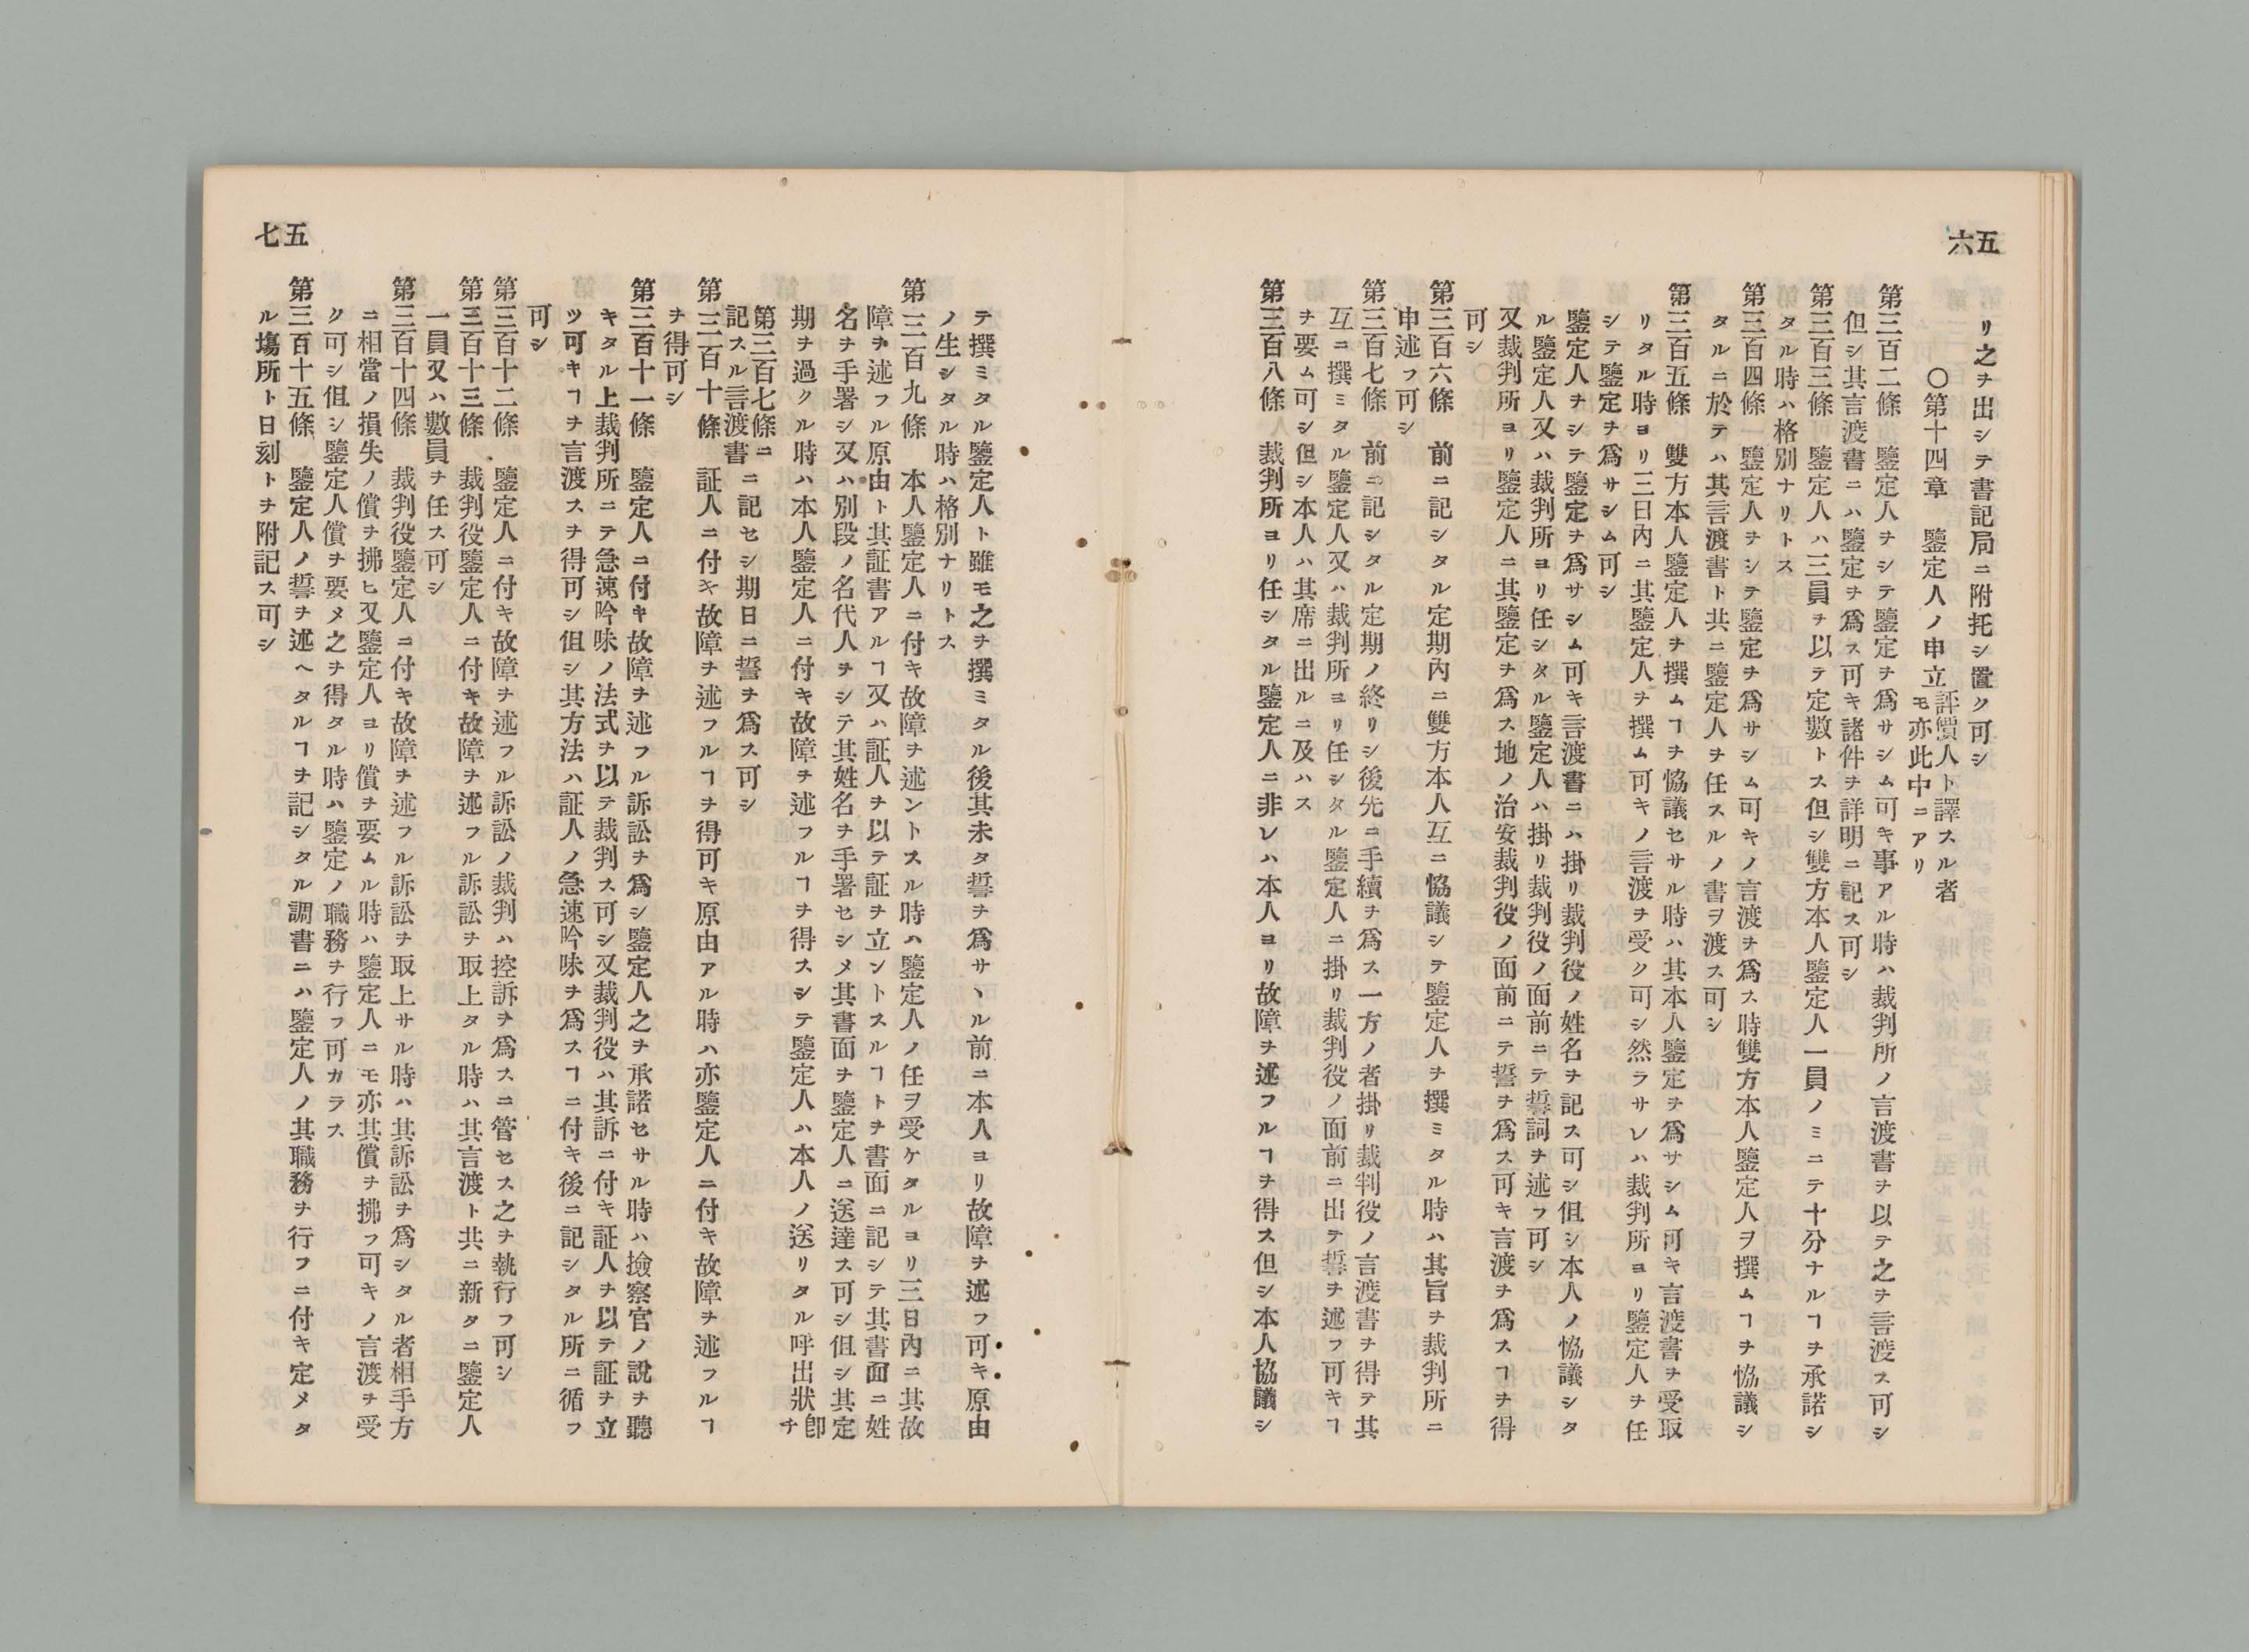 五六
リ之ヲ出シテ書記局ニ附托シ置ク可シ
〇第十四章　鑒定人ノ申立評價人ト譯スル者モ亦此中ニアリ
第三百二條　鑒定人ヲシテ鑒定ヲ爲サシム可キ事アル時ハ裁判所ノ言渡書ヲ以テ之ヲ言渡ス可シ
但シ其言渡書ニハ鑒定ヲ爲ス可キ諸件ヲ詳明ニ記ス可シ
第三百三條　鑒定人ハ三員ヲ以テ定數トス但シ雙方本人鑒定人一員ノミニテ十分ナルヿヲ承諾シ
タル時ハ格別ナリトス
第三百四條　鑒定人ヲシテ鑒定ヲ爲サシム可キノ言渡ヲ爲ス時雙方本人鑒定人ヲ撰ムヿヲ恊議シ
タルニ於テハ其言渡書ト共ニ鑒定人ヲ任スルノ書ヲ渡ス可シ
第三百五條　雙方本人鑒定人ヲ撰ムヿヲ恊議セサル時ハ其本人鑒定ヲ爲サシム可キ言渡書ヲ受取
リタル時ヨリ三日內ニ其鑒定人ヲ撰ム可キノ言渡ヲ受ク可シ然ラサレハ裁判所ヨリ鑒定人ヲ任
シテ鑒定ヲ爲サシム可シ
鑒定人ヲシテ鑒定ヲ爲サシム可キ言渡書ニハ掛リ裁判役ノ姓名ヲ記ス可シ但シ本人ノ恊議シタ
ル鑒定人又ハ裁判所ヨリ任シタル鑒定人ハ掛リ裁判役ノ面前ニテ誓詞ヲ述フ可シ
又裁判所ヨリ鑒定人ニ其鑒定ヲ爲ス地ノ治安裁判役ノ面前ニテ誓ヲ爲ス可キ言渡ヲ爲スヿヲ得
可シ
第三百六條　前ニ記シタル定期內ニ雙方本人互ニ恊議シテ鑒定人ヲ撰ミタル時ハ其旨ヲ裁判所ニ
申述フ可シ
第三百七條　前ニ記シタル定期ノ終リシ後先ニ手續ヲ爲ス一方ノ者掛リ裁判役ノ言渡書ヲ得テ其
互ニ撰ミタル鑒定人又ハ裁判所ヨリ任シタル鑒定人ニ掛リ裁判役ノ面前ニ出テ誓ヲ述フ可キヿ
ヲ要ム可シ但シ本人ハ其席ニ出ルニ及ハス
第三百八條　裁判所ヨリ任シタル鑒定人ニ非レハ本人ヨリ故障ヲ述フルヿヲ得ス但シ本人恊議シ
五七
テ撰ミタル鑒定人ト雖モ之ヲ撰ミタル後其未タ誓ヲ爲サヽル前ニ本人ヨリ故障ヲ述フ可キ原由
ノ生シタル時ハ格別ナリトス
第三百九條　本人鑒定人ニ付キ故障ヲ述ントスル時ハ鑒定人ノ任ヲ受ケタルヨリ三日內ニ其故
障ヲ述フル原由ト其証書アルヿ又ハ証人ヲ以テ証ヲ立ントスルヿトヲ書面ニ記シテ其書面ニ姓
名ヲ手署シ又ハ別段ノ名代人ヲシテ其姓名ヲ手署セシメ其書面ヲ鑒定人ニ送達ス可シ但シ其定
期ヲ過クル時ハ本人鑒定人ニ付キ故障ヲ述フルヿヲ得スシテ鑒定人ハ本人ノ送リタル呼出狀卽チ
第三百七條ニ記スル言渡書ニ記セシ期日ニ誓ヲ爲ス可シ
第三百十條　証人ニ付キ故障ヲ述フルヿヲ得可キ原由アル時ハ亦鑒定人ニ付キ故障ヲ述フルヿ
ヲ得可シ
第三百十一條　鑒定人ニ付キ故障ヲ述フル訴訟ヲ爲シ鑒定人之ヲ承諾セサル時ハ撿察官ノ說ヲ聽
キタル上裁判所ニテ急速吟味ノ法式ヲ以テ裁判ス可シ又裁判役ハ其訴ニ付キ証人ヲ以テ証ヲ立
ツ可キヿヲ言渡スヲ得可シ但シ其方法ハ証人ノ急速吟味ヲ爲スヿニ付キ後ニ記シタル所ニ循フ
可シ
第三百十二條　鑒定人ニ付キ故障ヲ述フル訴訟ノ裁判ハ控訴ヲ爲スニ管セス之ヲ執行フ可シ
第三百十三條　裁判役鑒定人ニ付キ故障ヲ述フル訴訟ヲ取上タル時ハ其言渡ト共ニ新タニ鑒定人
一員又ハ數員ヲ任ス可シ
第三百十四條　裁判役鑒定人ニ付キ故障ヲ述フル訴訟ヲ取上サル時ハ其訴訟ヲ爲シタル者相手方
ニ相當ノ損失ノ償ヲ拂ヒ又鑒定人ヨリ償ヲ要ムル時ハ鑒定人ニモ亦其償ヲ拂フ可キノ言渡ヲ受
ク可シ但シ鑒定人償ヲ要メ之ヲ得タル時ハ鑒定ノ職務ヲ行フ可カラス
第三百十五條　鑒定人ノ誓ヲ述ヘタルヿヲ記シタル調書ニハ鑒定人ノ其職務ヲ行フニ付キ定メタ
ル塲所ト日刻トヲ附記ス可シ